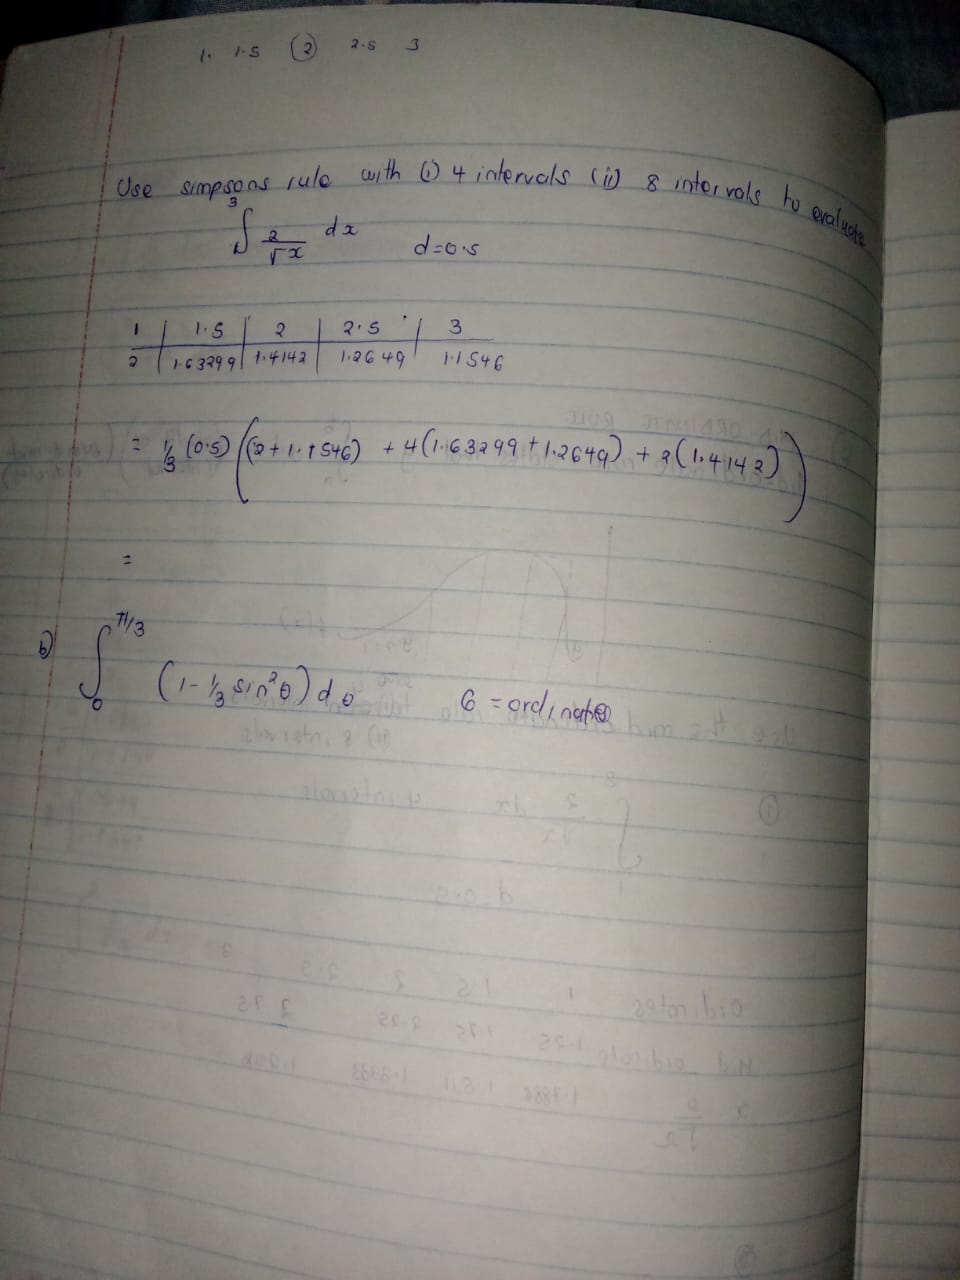 1. 1.5 2 2.5 3
Use simpsons rule with (i) 4 intervals (ii) 8 intervals to evaluate
∫₁³ 2/√x dx d=0.5
1 | 1.5 | 2 | 2.5 | 3
2 | 1.63299 | 1.4142 | 1.2649 | 1.1546
= 1/3 (0.5) ((2+1.1546) + 4(1.63299+1.2649) + 2(1.4142))
=
b) ∫₀^π/3 (1-1/3 sin²θ) dθ 6 = ordinates